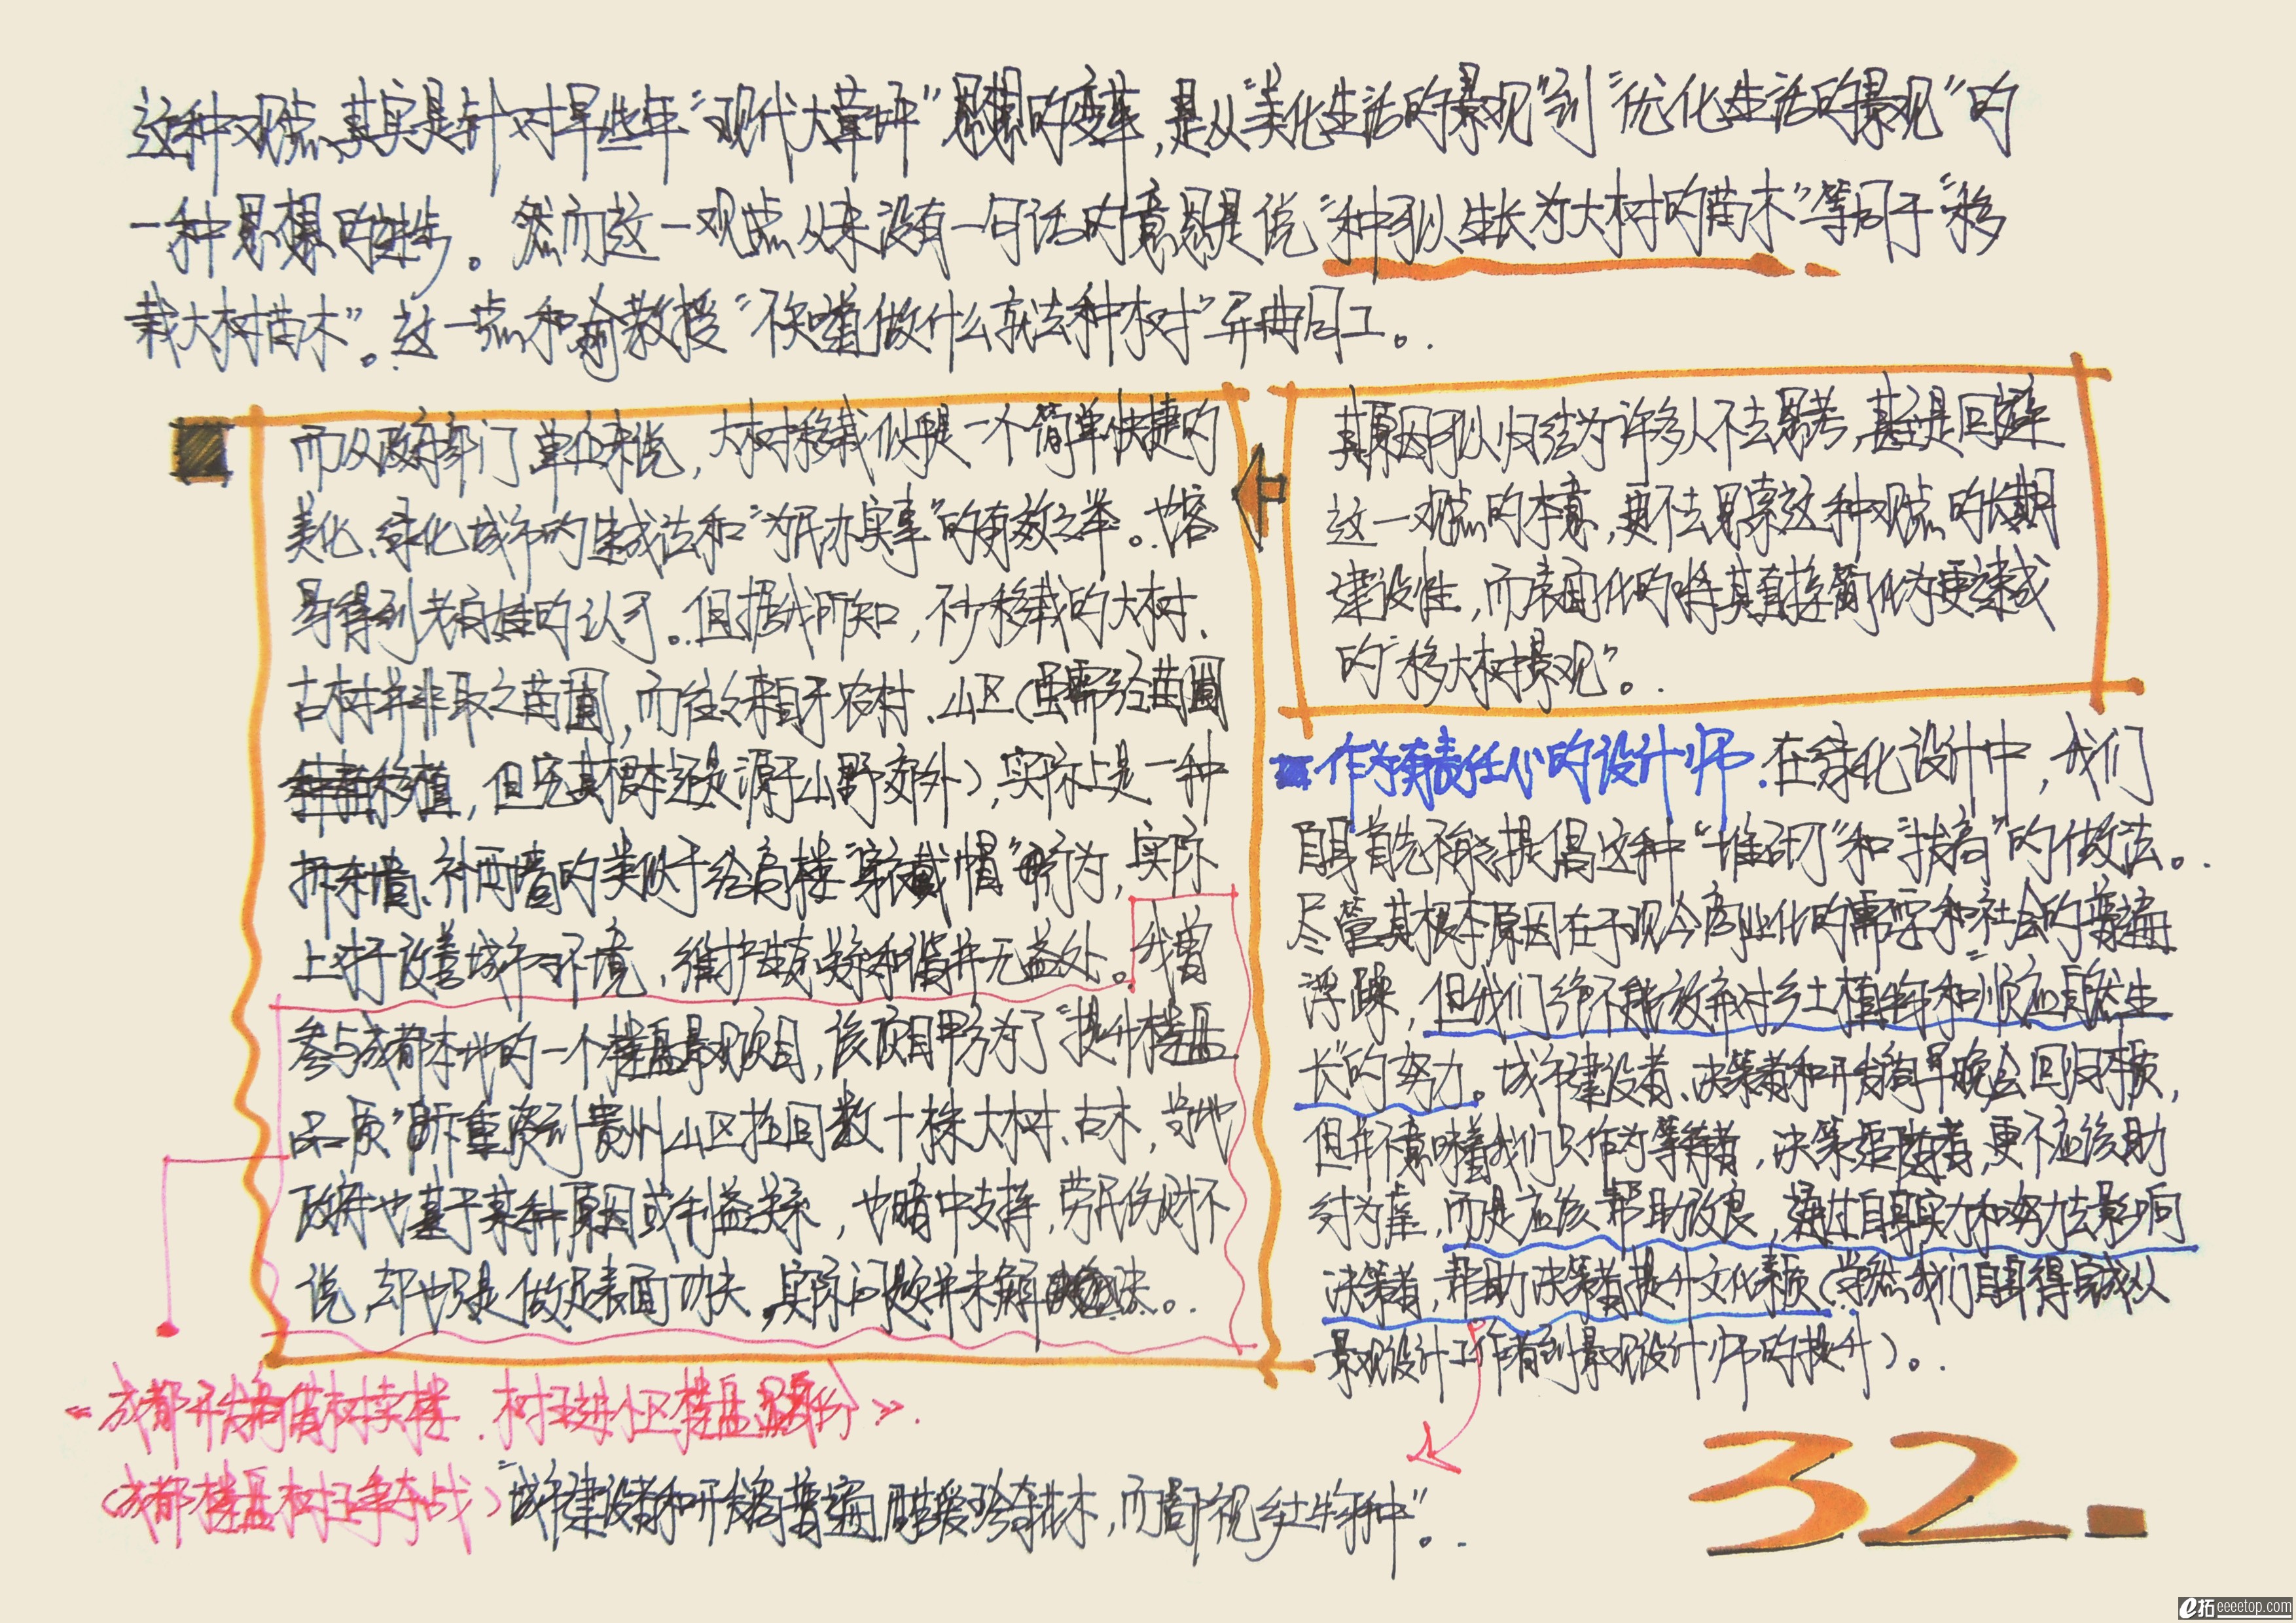 这种观点，其实是针对早些年“现代大草坪”思想的变革，是从“美化生活的景观”到“优化生活的景观”的
一种思想的进步。然而这一观点从来没有一句话的意思是说“种可以生长为大树的苗木”等同于“移
栽大树苗木”。这一点和俞教授“不知道做什么就去种树”异曲同工。
其原因可以归结为许多人不去思考，甚至是回避
这一观点的本意，更不去思索这种观点的长期
建设性，而表面化的将其直接简化为更速成
的“移大树景观”。
而以政府部门单位来说，大树移栽似乎是一个简单快捷的
美化、绿化城市的速成法和“为民办实事”的有效之举。也容
易得到老百姓的认可。但据我所知，不少移栽的大树、
古树并非取之苗圃，而往往来自于农村、山区（虽需经苗圃
移植，但究其根本还是源于山野郊外），实际上是一种
拆东墙、补西墙的类似于给高楼“穿衣戴帽”的行为，实际
上对于改善城市环境，维护生态和谐并无益处。我曾
参与成都本地的一个楼盘景观项目，该项目甲方为了“提升楼盘
品质”不惜重资到贵州山区拉回数十株大树、古木，当地
政府也基于某种原因或利益关系，也暗中支持，劳民伤财不
说，却也只是做足表面功夫，实际问题并未解决。
作为有责任心的设计师.在绿化设计中，我们
自身首先不能提倡这种“堆砌”和“拔高”的做法。
尽管其根本原因在于现今商业化的需求和社会的普遍
浮躁，但我们绝不能放弃对乡土植物和“顺应自然生
长”的努力。城市建设者、决策者和开发商早晚会回归本质，
但并不意味着我们只作为等待者，决策追随者，更不应该助
纣为虐，而是应该帮助改良，通过自身实力和努力去影响
决策者，帮助决策者提升文化素质（当然我们自身得完成从
景观设计工作者到景观设计师的提升）。
《成都开发商借树卖楼.树王进小区楼盘》.
（成都楼盘树王争夺战）“城市建设者和开发商普遍酷爱珍奇花木，而鄙视乡土物种”。
32.
e拓 eeeetop.com